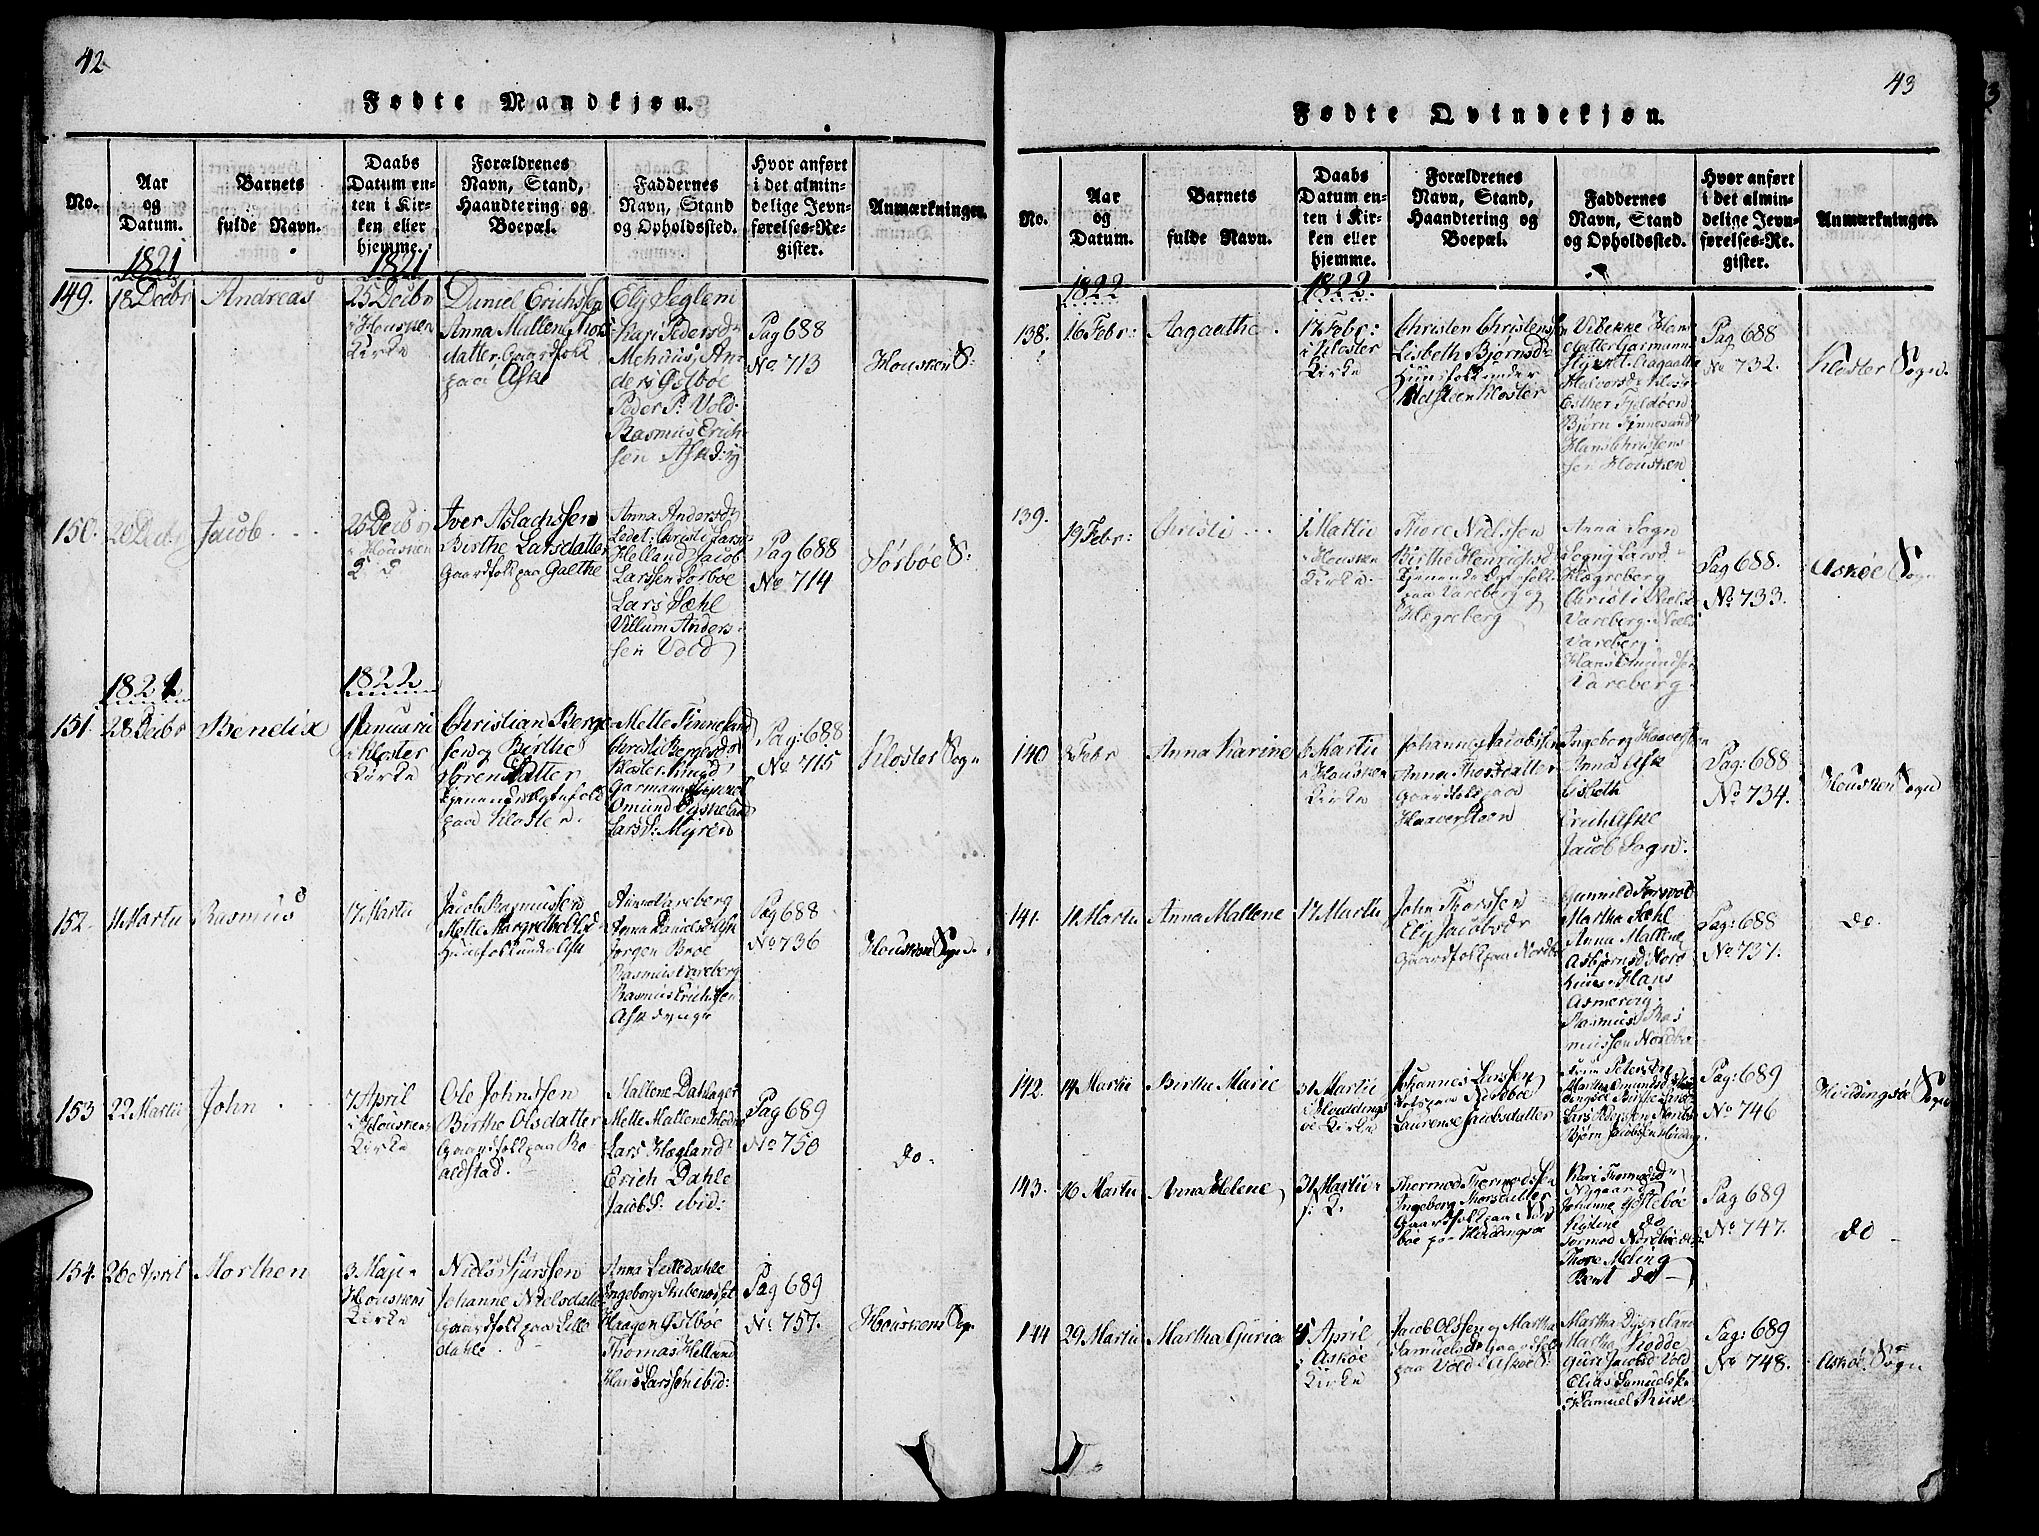 42
Fødte Mandkjøn.
No.
Aar
og
Datum.
Barnets
fulde Navn.
Daabs
Datum en-
ten i Kir-
ken eller
hjemme.
Forældrenes
Navn, Stand,
Haandtering og
Boepæl.
Faddernes
Navn, Stand
og Opholdssted.
Hvor anført
i det almin-
delige Jevn-
førelses-Re-
gister.
Anmærkninger.
1821
1821
149.
18 Decbr
Andreas
25 Decbr
i Housken
Kirke
Daniel Erichssen
Anna Mallene Thors
datter Gaardfolk
paa Aske
Elj Seglem
Kari Pedersdr
Mehuus, An-
ders Østbøe
Peder P. Vold
Rasmus Erich-
sen Aske
Pag 688
No 713
Housken S:
150.
20 Decbr
Jacob
25 Decbr
i Housken
K
Iver Aslachssen
Birthe Larsdatter
Gaardfolk paa Galthe
Anna Andersdr
Ledet: Christi Lars
Helland Jacob
Larssen Sørbøe
Lars Sæhl
Villum Anders-
sen Vold
Pag 688
No 714
Sørbøe S:
1821
1822
151.
28 Decbr
Bendix
1 Januari
i Kloster
Kirke
Christian Berge
sen og Birthe
Sørensdatter
tjenende Egtefolk
paa Kloster.
Mette Finnesand
Christi Bergesdr
Kloster. Knud
Garman
Omund Eysneland
Lars S: Myren
Pag: 688
No 715
Kloster Sogn
152.
11 Martii
Rasmus
17 Martii
Jacob Rasmussen
Mette Margrethe Olsd
Huusfolk under Aske
Anna Vareberg
Anna Danielsd Aske
Jørgen Broe
Rasmus Vareberg
Rasmus Erichssen
Aske
Pag 688
No 736
Housken Sogn.
153
22 Martii
John
7 April
i Houskens
Kirke
Ole Johnssen
Birthe Olsdatter
Gaardfolk paa Ro-
aldstad.
Mallene Dahlager
Mette Mallene
Lars Hægland
Erich Dahle
Jacob S: ibid:
Pag 689
No 750
do.
154.
26 April
Morthen
3 Maji
Houskens
Kirke
Niels Siurssen
Johanne Nielsdatter
Gaardfolk paa Lille
dahle.
Anna Lilledahle
Ingeborg
Haagen Østbøe
Thomas Helland
Hans Larssen ibid:
Pag 689
No 757.
Houskens Sogn
43
Fødte Qvindekjøn.
No.
Aar
og
Datum.
Barnets
fulde Navn.
Daabs
Datum en-
ten i Kir-
ken eller
hjemme.
Forældrenes
Navn, Stand,
Haandtering og
Boepæl.
Faddernes
Navn, Stand
og Opholdssted.
Hvor anført
i det almin-
delige Jevn-
førelses-Re-
gister.
Anmærkninger.
1822
1822.
138.
16 Febr:
Aagaathe
17 Febr:
i Kloster
Kirke
Christen Christenssen
Lisbeth Bjørnsdr
Huusfolk under
Udsteen Kloster
Vibekke Hans
datter Garmann
Aagaathe
Halvorsdr Kloster
Esther Fjeldøen
Bjørn Finnesand
Hans Christens
sen Housken
Pag 688
No 732.
Kloster Sogn.
139.
19 Febr:
Christi
1 Martii
i Housken
Kirke
Thore Nielssen
Birthe Henrichsd
tjenende Egtefolk
paa Vareberg og
Hægreberg
Anna Sogn
Sogny Larsd
Hægreberg
Christi Nielsd
Vareberg. Niels
Vareberg.
Hans Omundsen
Vareberg.
Pag 688.
No 733.
Askøe Sogn
140
Febr
Anna Karine
Martii
i Housken
Kirke
Johannes Jacobssen
Anna Thorsdatter
Gaardfolk paa
Haaversteen
Ingeborg Haaversteen
Anna Aske
Lisbeth
Erich Aske
Jacob Sogn.
Pag: 688
No 734.
Housken Sogn
141.
11 Martii
Anna Mallene
17 Martii
John Thorssen
Elj Jacobsdr
Gaardfolk paa Nordbø
Gunnild
Martha Sæhl
Anna Mallene
Asbjørnsd
Hans
Asmervig.
Rasmus Ras
mussen Nordbø
Pag: 688
No 737.
do
142.
14 Martii
Birthe Marie
31 Martii
i Hviddings
øe Kirke
Johannes Larssen
Nordbøe
Laurense Jacobsdatter
Petersd
Martha Omundsd
Lars Pedersen Nordbø
Bjørn Jacobssen
Pag: 689
No 746
Hviddingsøe Sogn
143.
16 Martii
Anna Helene
31 Martii
i do.
Thormod Thormodssen
Ingeborg Thorsdatter
Gaardfolk paa Nord
bøe paa Hviddingsøe
Kari Thormodsd
Nygaard
Johanne Østebøe
do
Tormod Nordbøe
Thore Meling
Bent do
Pag 689
No 747.
do
144
29 Martii
Martha Guria
5 April
i Askøe
Kirke
Jacob Olssen og Martha
Samuelsdr Gaardfolk
paa Vold i Askøe S:
Martha Dysjeland
Martha Hodde
Guri Jacobsd Vold
Elias Samuelssen
Samuel
Pag: 689
No 748.
Askøe Sogn